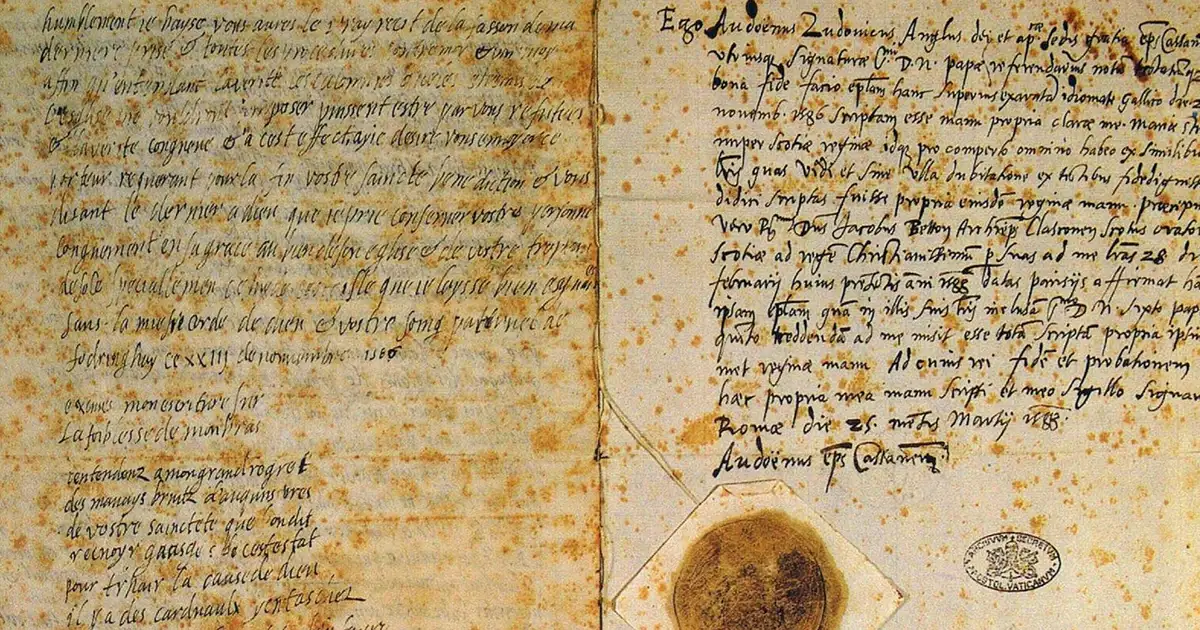 humblement je bayse vous aures le vray recit de la fasson de ma
derniere prise & toutes les procedures contre moy & un moy
afin qu'entendant la verite les calomnies que les
imposer puissent estre par vous refutees
& la verite congneue & a cest effect ay je desire vous envoyer ce
porteur requerant pour la fin vostre saincte benediction & vous
disant le dernier a dieu que je prie conserver vostre personne
longuement en sa grace au bien de son eglise & de vostre troupeau
desole speciallement de ceste isle que je laysse bien
sans la misericorde de dieu & vostre soing paternel de
fodringhay ce XXIIJ de novambre 1586
excuses mon escriture sur
La foiblesse de mon bras
J'entendz a mon grand regret
des mauvays bruitz d'auguns pres
de vostre sainctete que l'on dit
recevoyr gages de cest estat
pour trahir la cause de dieu
il y a des cardinaulx
Ego Audoënus Ludovicus Anglus dei et apcæ sedis gratia eps Cassan
utriusq Signaturæ Smi D.N. papæ referendarius notu testatuq
bona fide facio eplam hanc superius exaratã idiomate gallico die 2
novemb. 1586 scriptam esse manu propria claræ me. Mariæ St
nuper Scotiæ reginæ idq pro comperto omnino habeo ex similibu
lris quas vidi et sine ulla dubitatione ex testibus fidedignis
didici scriptas fuisse propria eiusdẽ reginæ manu. præcipu
vero Rmus Dnus Jacobus Betton Archieps Glasconen Scotus orator
Scotiæ ad regẽ Christianissimum p suas ad me lras 28 di
februarij huius præsentis anni 1588 datas parisijs affirmat ha
ipsam eplam quã in illis suis lris inclusã Smo D.N. sixto papæ
quinto reddendã ad me misit esse totã scriptã propria ipsiu
met reginæ manu. Ad cuius rei fidẽ et probationem
hæc propria mea manu scripsi et meo sigillo signavi
Romæ die 25. mẽsis Martij 1588.
Audoënus eps Cassanens
ARCHIVVM SECRETVM
APOSTOL. VATICANVM